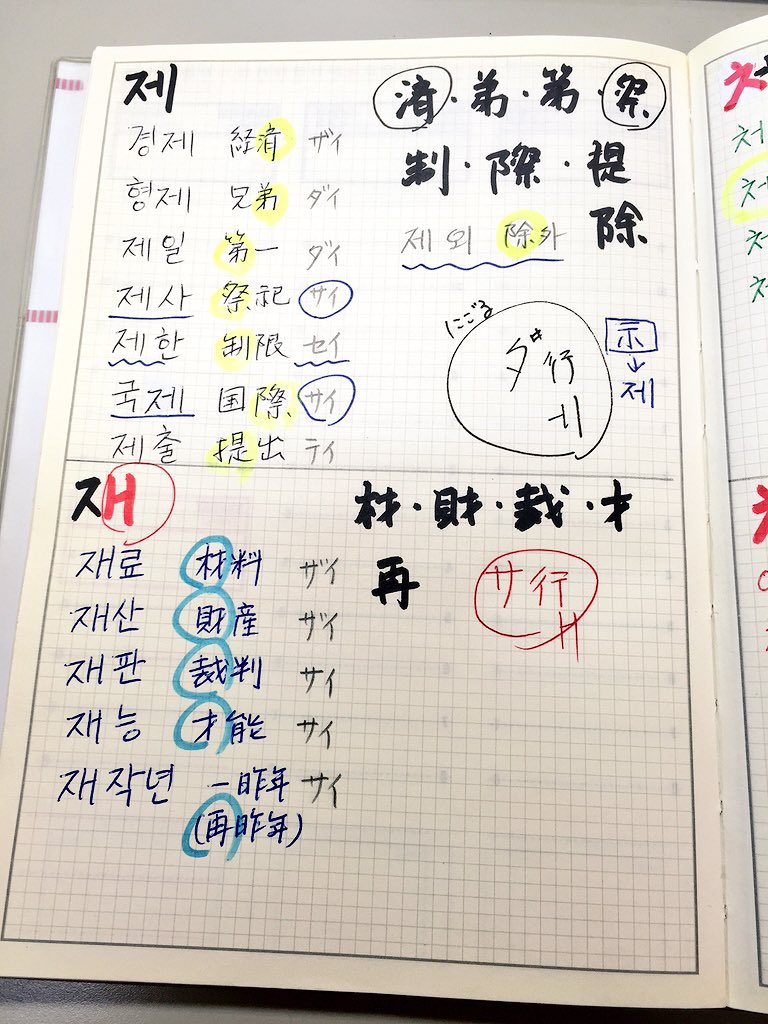 제
済・弟・第・祭
制・際・提
除
경제 経済 ザイ
형제 兄弟 ダイ
제일 第一 ダイ
제사 祭祀 サイ
제한 制限 セイ
국제 国際 サイ
제출 提出 テイ
제외 除外
にごる
ダ行
ㅔ
示
↓
제
재
材・財・裁・才
再
재료 材料 ザイ
재산 財産 ザイ
재판 裁判 サイ
재능 才能 サイ
재작년 一昨年 サイ
(再昨年)
サ行
ㅐ